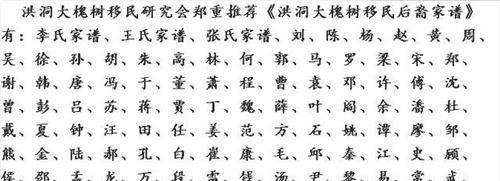 洪洞大槐树移民研究会郑重推荐《洪洞大槐树移民后裔家谱》
有：李氏家谱、王氏家谱、张氏家谱、刘、陈、杨、赵、黄、周、
吴、徐、孙、胡、朱、高、林、何、郭、马、罗、梁、宋、郑、
谢、韩、唐、冯、于、董、萧、程、曹、袁、邓、许、傅、沈、
曾、彭、吕、苏、蒋、贾、丁、魏、薛、叶、阎、余、潘、杜、
戴、夏、钟、汪、田、任、姜、范、方、石、姚、谭、廖、邹、
熊、金、陆、郝、孔、白、崔、康、毛、邱、秦、江、史、顾、
侯、邵、孟、龙、万、段、雷、钱、汤、尹、黎、易、常、